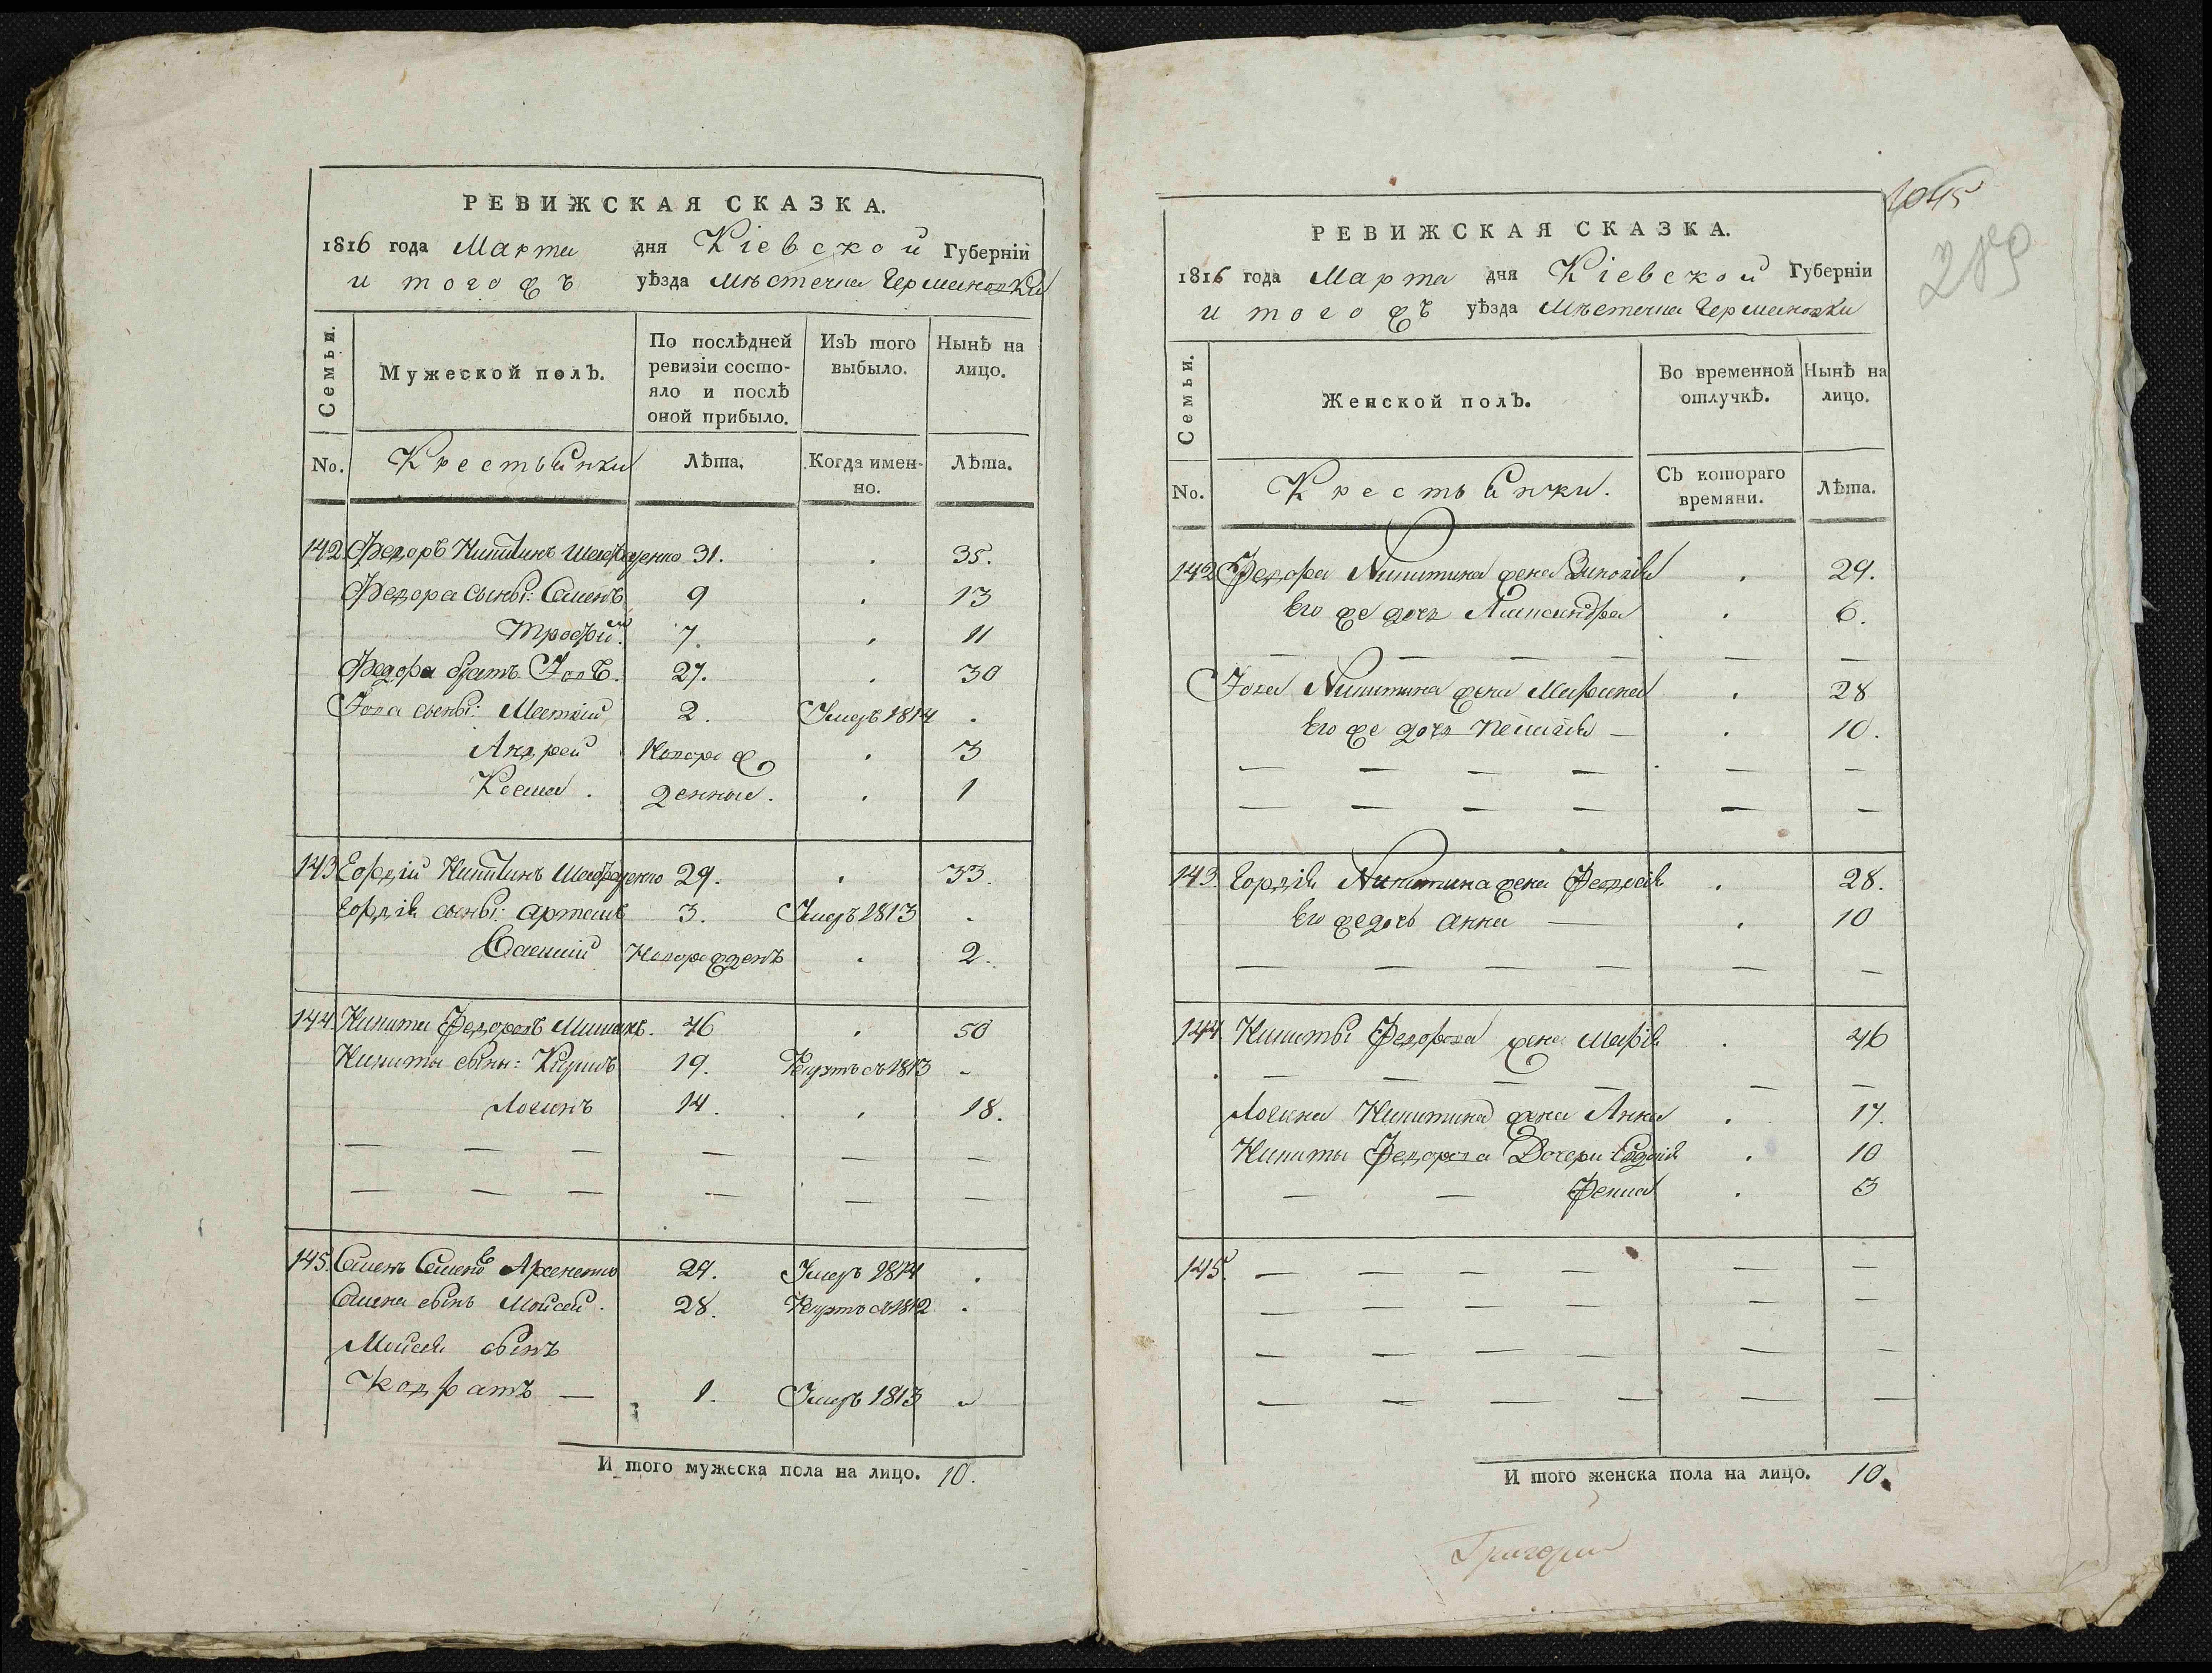 РЕВИЖСКАЯ СКАЗКА.
1816 года Марта дня Кіевской Губерніи
и тогожъ уѣзда Мѣстечка Германовки
Семьи.
Мужеской полЪ.
По послѣдней ревизіи состояло и послѣ оной прибыло.
ИзЪ того выбыло.
Нынѣ на лицо.
No.
Крестьянки
Лѣта.
Когда именно.
Лѣта.
142 Федоръ Никитинъ 31. . 35.
Федора сыны: Семенъ 9 . 13
Трофим. 7. . 11
Федора братъ Іовъ. 27. . 30
Іова сыны: 2. Умеръ 1814 .
Андрей новорож . 3
Косма . денные . . 1
143 Гордій Никитинъ 29. . 33.
Гордія сыны: Артемъ 3. Умеръ 1813 .
Василій Новорожденъ . 2.
144 Никита Федоровъ 46 . 50
Никиты сыны: 19. Рекрутъ съ 1813 .
Логинъ 14. . 18.
145. Семенъ Семеновъ 29. Умеръ 1814 .
Семена сынъ Мойсей. 28. Рекрутъ съ 1812 .
Мойсея сынъ
Кодратъ — 1. Умеръ 1813
И того мужеска пола на лицо. 10.
1045
РЕВИЖСКАЯ СКАЗКА.
1816 года Марта дня Кіевской Губерніи
и тогожъ уѣзда Мѣстечка Германовки
Семьи.
Женской полЪ.
Во временной отлучкѣ.
Нынѣ на лицо.
No.
Крестьянки.
СЪ котораго времяни.
Лѣта.
142 Федора Никитина жена Зиновія . 29.
Его же дочь Александра . 6.
Іова Никитина жена Марина . 28
Его же дочь Пелагія — . 10.
143. Гордія Никитина жена Феодосія . 28.
Его же дочь Анна — . 10
144. Никиты Федорова жена Марія . 46
Логина Никитина жена Анна . 17.
Никиты Федорова Дочери . 10
. 3
145.
И того женска пола на лицо. 10.
Григори